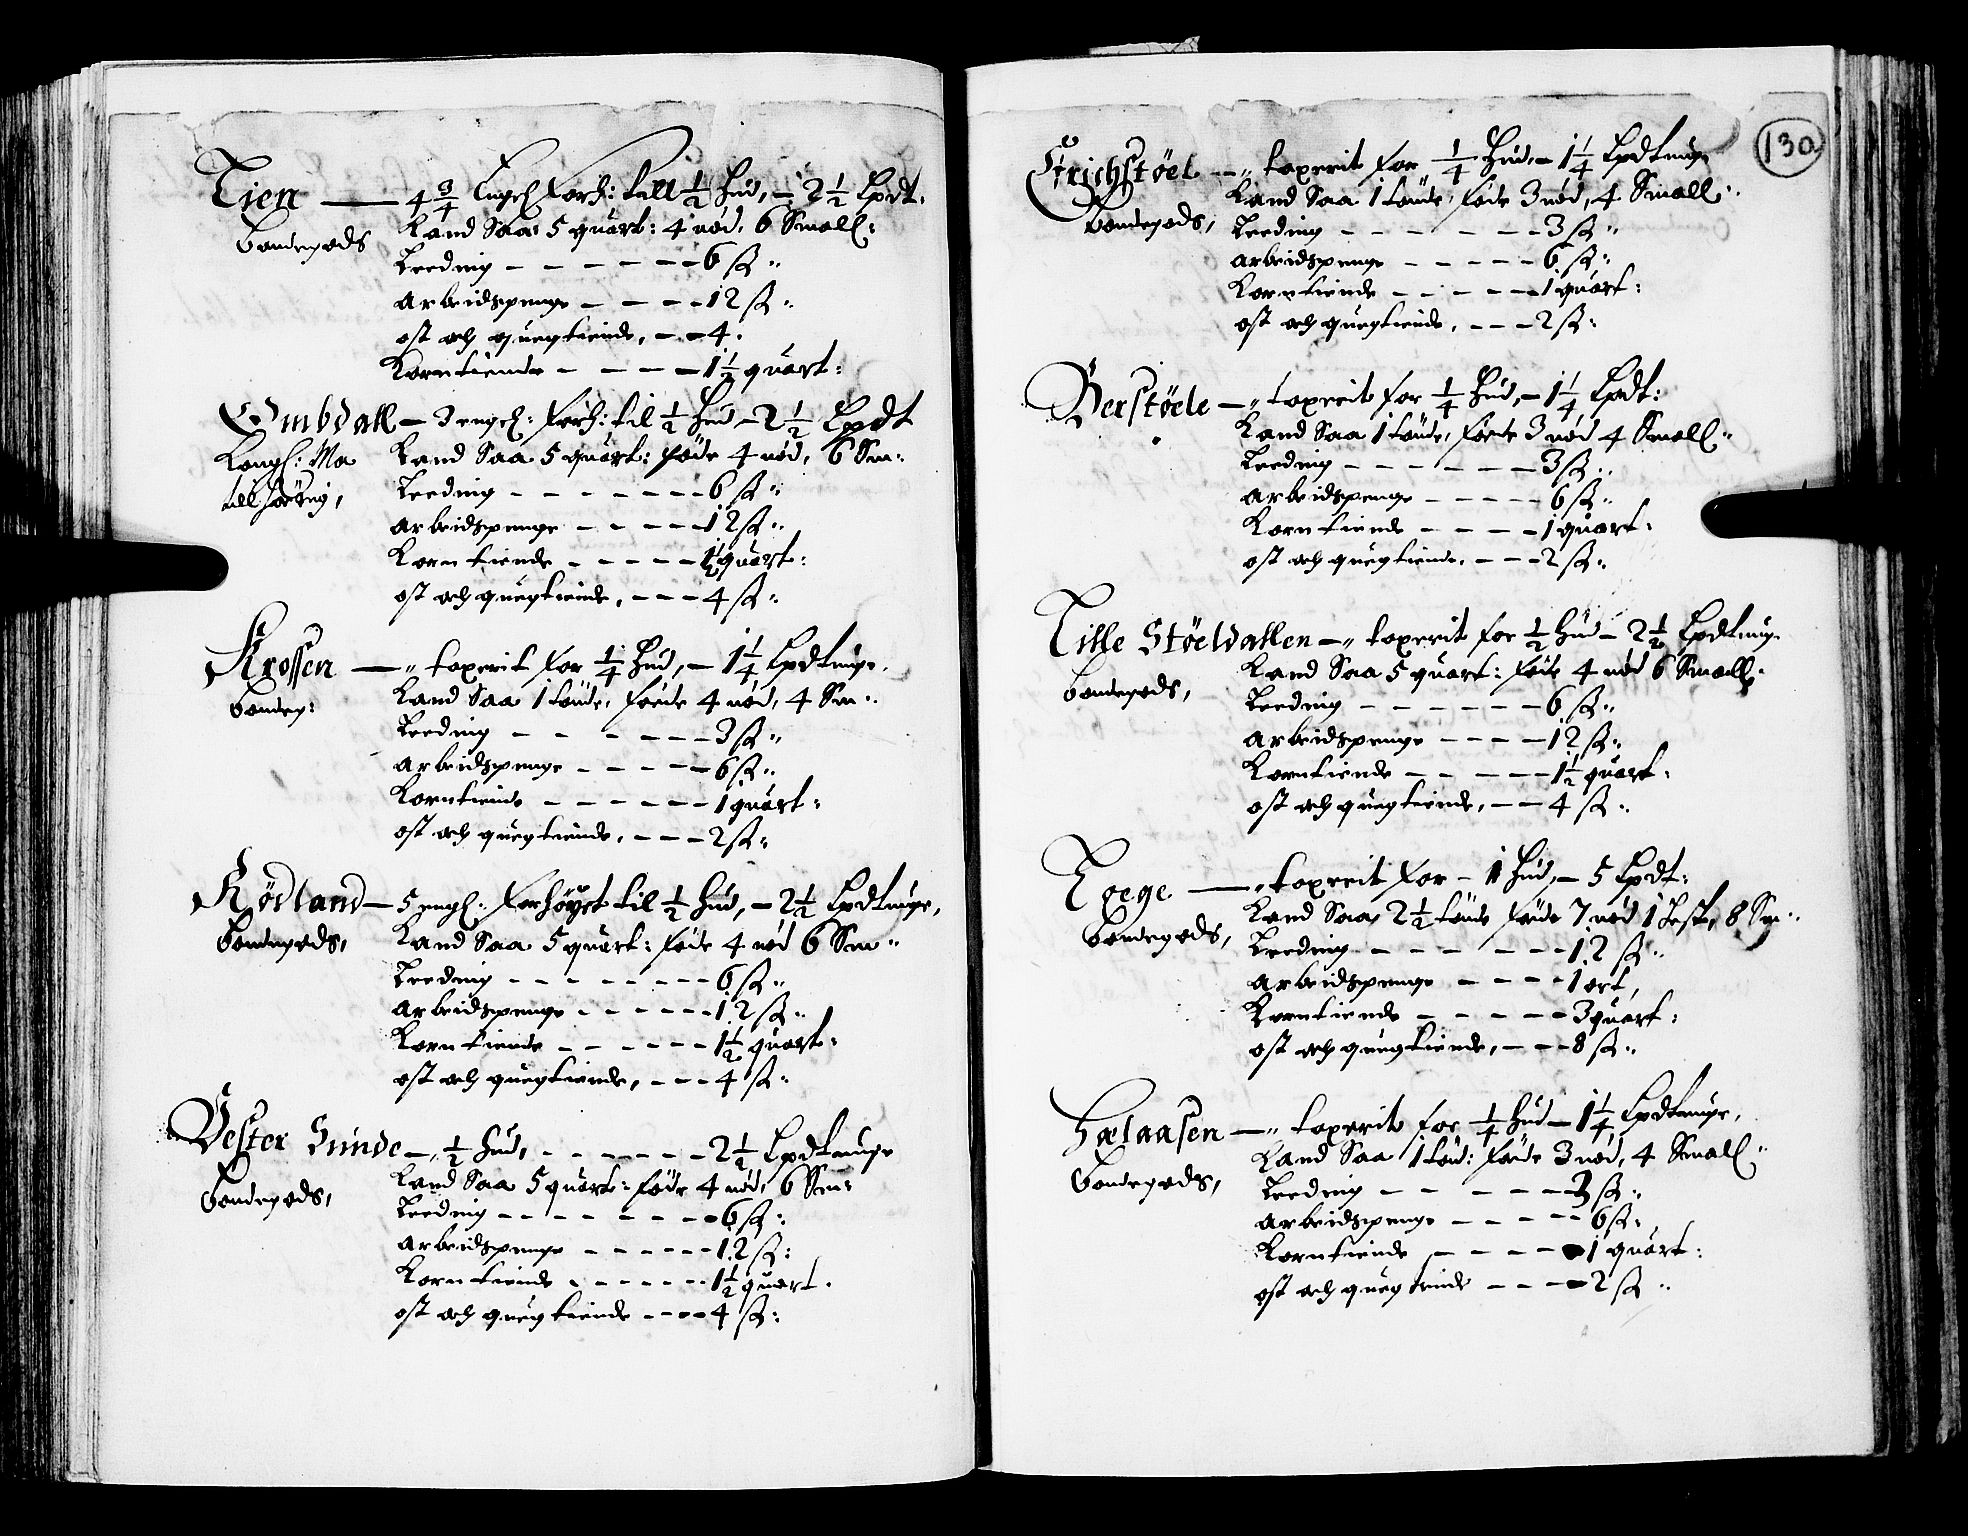 Tien — 4 3/4 Engel forh: till 1/2 hud, — 2 1/2 Lpdt:
Bondegods
Land Saar 5 quart: 4 nød, 6 Small:
Leeding — 6 ß
Arbeidspenge — 12 ß
ost och quegtiende, — 4:
Korntiende — 1 1/2 quart:
Ombdall — 3 engel: forh: til 1/2 hud — 2 1/2 Lpdt
Kongl: Ma
till hørrig,
Land Saa 5 quart: føde 4 nød, 6 Sm:
Leeding — 6 ß
Arbeidspenge — 12 ß
Korntiende — 1 1/2 quart:
ost och quegtiende, — 4 ß
Krossen — taxerit for 1/4 hud, — 1 1/4 Lpdtunge
Bondeg:
Land Saa 1 tønde, føede 4 nød, 4 Sm:
Leeding — 3 ß
Arbeidspenge — 6 ß
Korntiende — 1 quart:
ost och quegtiende, — 2 ß
Rødland — 5 engl: forhøyet til 1/2 hud, — 2 1/2 Lpdtunge,
Bondegods,
Land Saa 5 quart: føde 4 nød 6 Sm
Leeding — 6 ß
Arbeidspenge — 12 ß
Korntiende — 1 1/2 quart:
ost och quegtiende, — 4 ß
Vester Sunde — 1/2 hud, — 2 1/2 Lpdtunge
Bondegods,
Land Saa 5 quart: føde 4 nød, 6 Sm:
Leeding — 6 ß
Arbeidspenge — 12 ß
Korntiende — 1 1/2 quart.
ost och quegtiende — 4 ß
130
Frichstøel — taxerit for 1/4 hud, — 1 1/4 Lpdtunge
Bondegods,
Land Saa 1 tønde, føde 3 nød, 4 Small:
Leeding — 3 ß
Arbeidspenge — 6 ß
Korntiende — 1 quart:
ost och quegtiende, — 2 ß
Berstøele — taxerit for 1/4 hud, — 1 1/4 Lpdt:
Land Saa 1 tønde, føede 3 nød 4 Small
Leeding — 3 ß
Arbeidspenge — 6 ß
Korntiende — 1 quart:
ost och quegtiende, — 2 ß
Lille Støelvallen — taxerit for 1/2 hud — 2 1/2 Lpdtunge
Bondegods,
Land Saa 5 quart: føde 4 nød 6 Small:
Leeding — 6 ß
Arbeidspenge — 12 ß
Korntiende — 1 1/2 quart:
ost och quegtiende, — 4 ß
Egege — taxerit for — 1 hud, — 5 Lpdt:
Bondegods,
Land Saar 2 1/2 tønde føde 7 nød 1 hest, 8 Sm
Leeding — 12 ß
Arbeidspenge — 1 ort,
Korntiende — 3 quart:
ost och quegtiende, — 8 ß
Hælaasen — taxerit for 1/4 hud — 1 1/4 Lpdtunge,
Bondegods,
Land Saa 1 tønd: føede 3 nød, 4 Small
Leeding — 3 ß
Arbeidspenge — 6 ß
Korntiende — 1 quart:
ost och quegtiende — 2 ß